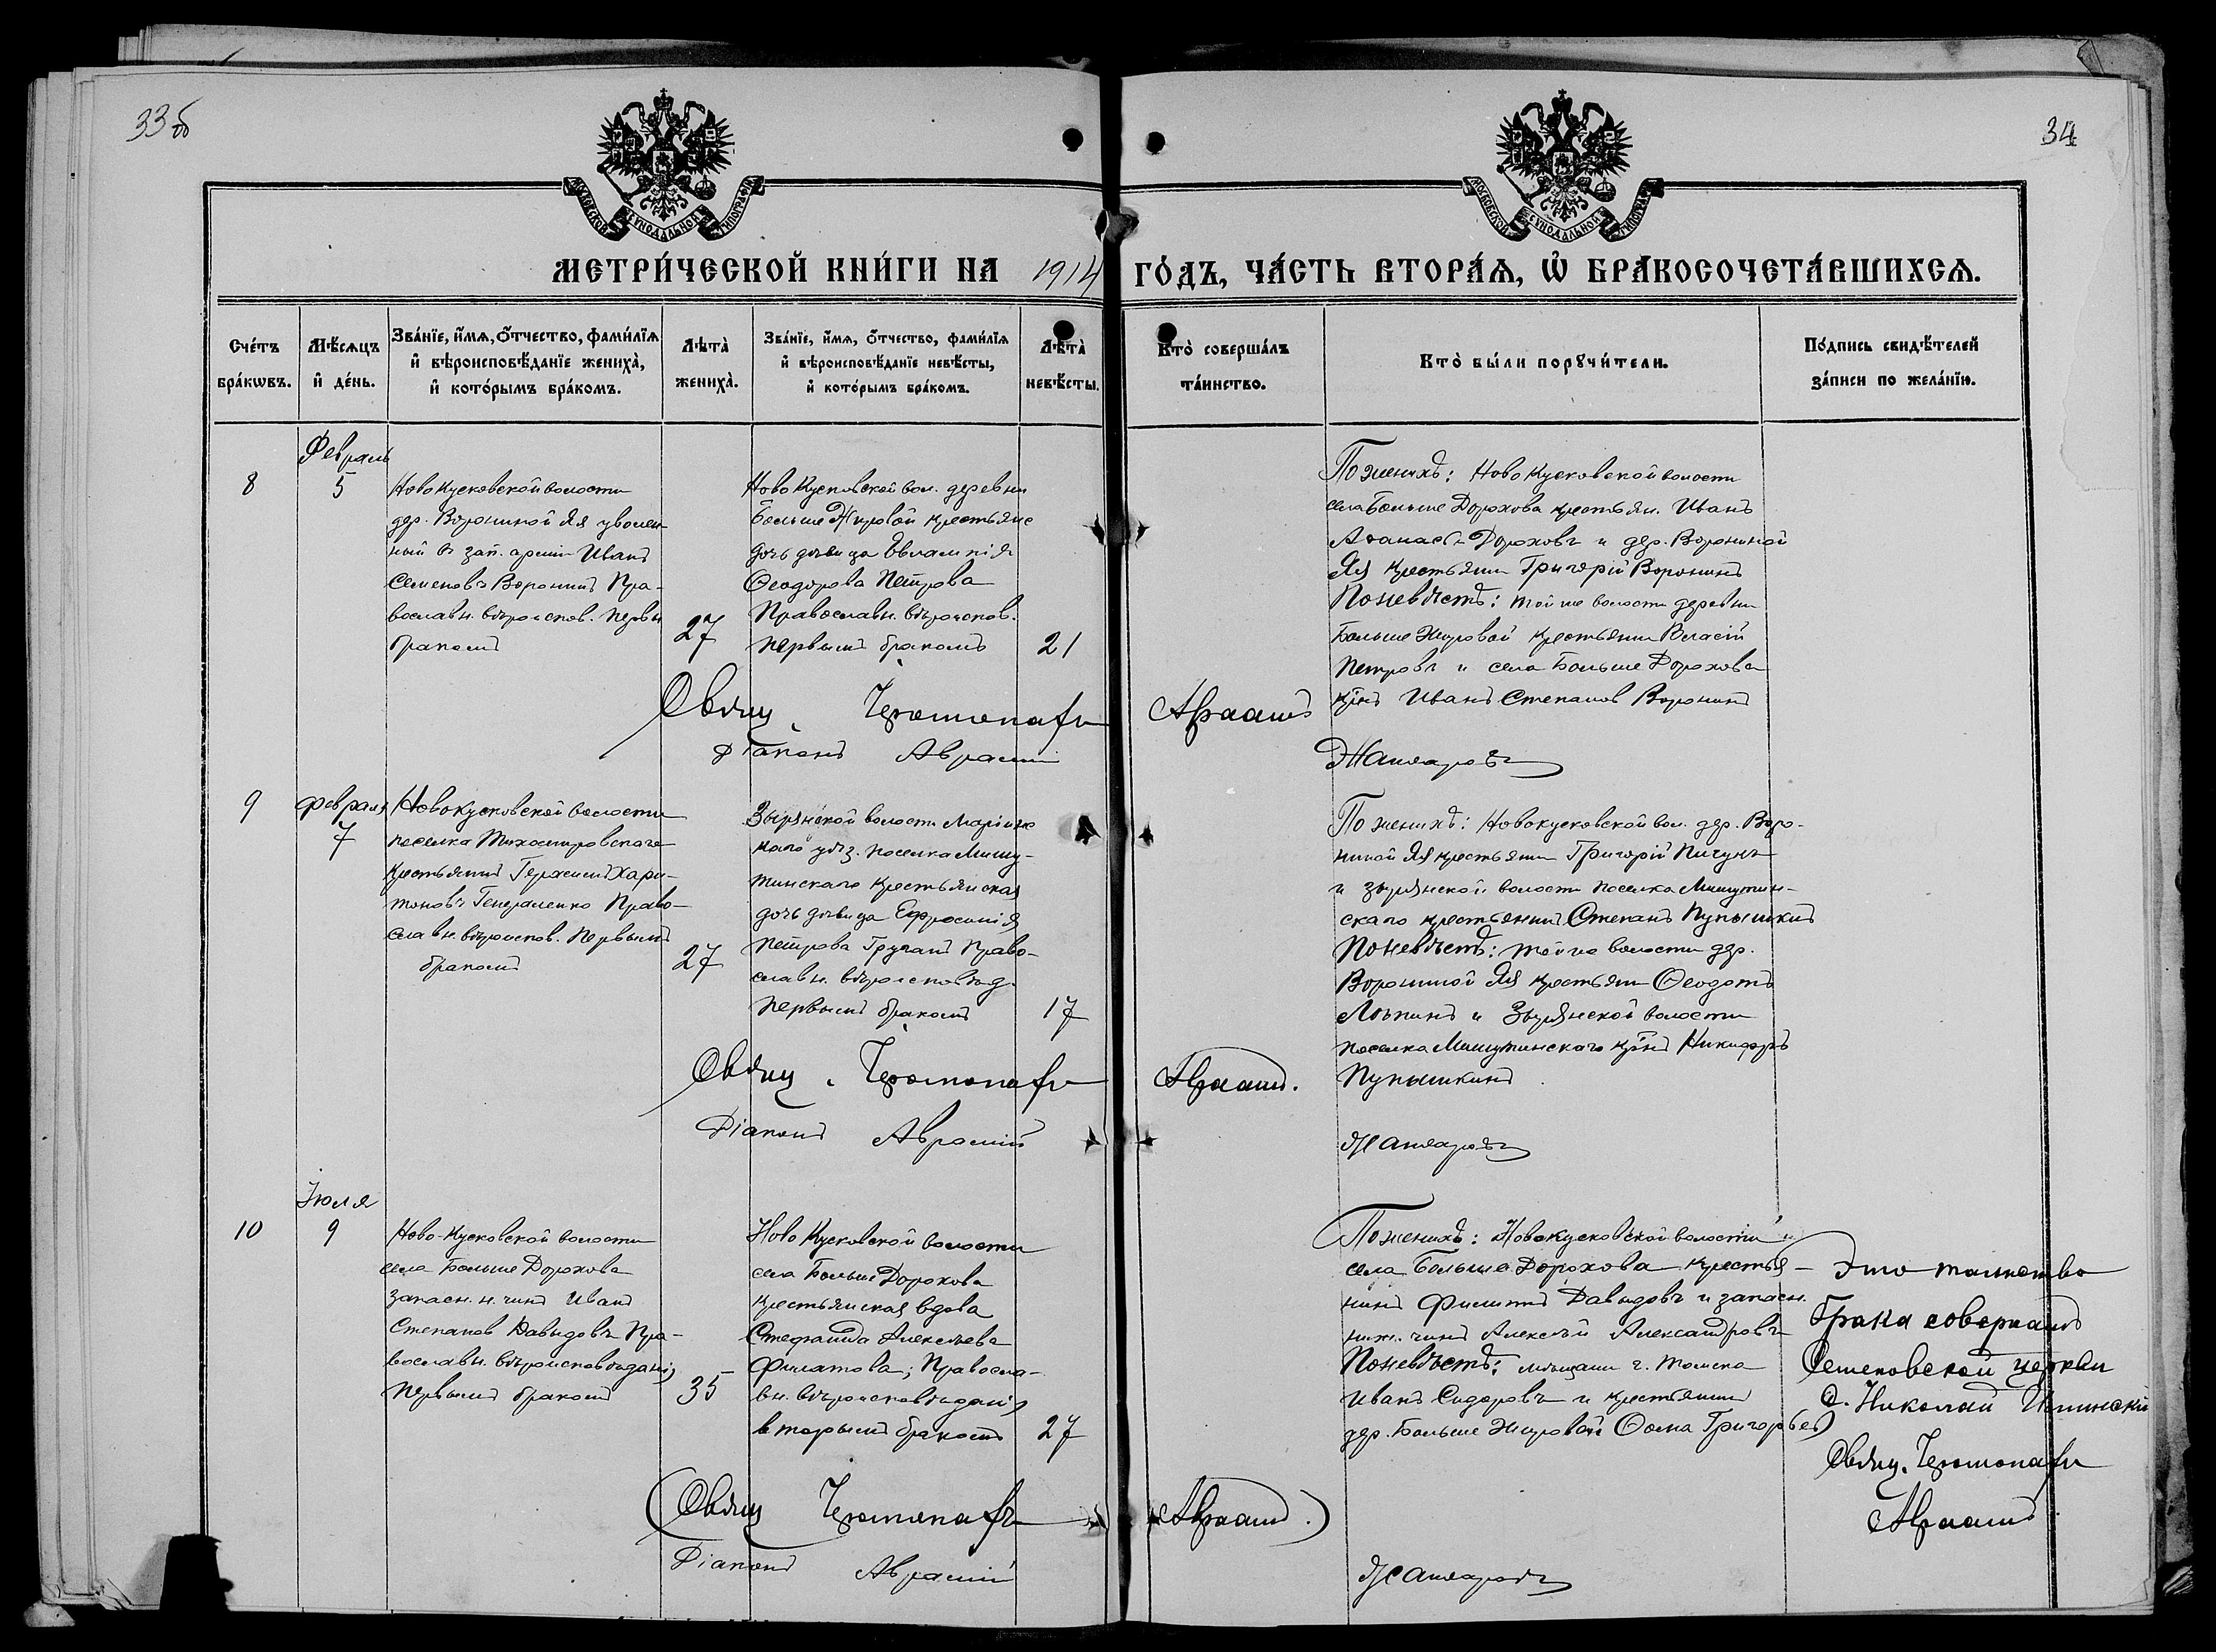 33 об
34
МОСКОВСКОЙ СѴНОДАЛЬНОЙ ТИПОГРАФІИ
МОСКОВСКОЙ СѴНОДАЛЬНОЙ ТИПОГРАФІИ
МЕТРИ́ЧЕСКОЙ КНИ́ГИ НА 1914 ГО́ДЪ, ЧА́СТЬ ВТОРА́Я, Ѡ БРАКОСОЧЕТА́ВШИХСЯ.
Сче́тъ бра́кѡвъ.
Мѣ́сяцъ и де́нь.
Зва́нїе, и́мя, о́тчество, фами́лїя
и вѣроисповѣ́данїе жениха̀,
и кото́рымъ бра́комъ.
Лѣта̀ жениха̀.
Зва́нїе, и́мя, о́тчество, фами́лїя
и вѣроисповѣ́данїе невѣ́сты,
и кото́рымъ бра́комъ.
Лѣта̀ невѣ́сты.
Кто̀ соверша́лъ та́инство.
Кто̀ бы́ли порꙋчи́тели.
По́дпись свидѣ́телей
за́писи по жела́нїю.
8
Февраль
5
Ново Кусковской волости
дер. Ворониной Яя уволен-
ный въ зап. арміи Иванъ
Семеновъ Воронинъ Пра-
вославн. вѣроиспов. первы
бракомъ
27
Ново Кусковской вол. деревни
Больше Жировой крестьянс
дочь дѣвица Евлампія
Ѳеодорова Петрова
Православн. вѣроиспов.
первымъ бракомъ
21
Свящ. Іеромонахъ Авраамъ
Діаконъ Аврамій
По женихѣ: Ново Кусковской волости
села Больше Дорохова крестьян. Иванъ
Аѳанас. Дороховъ и дер. Ворониной
Яя крестьянин Григорій Воронинъ
По невѣстѣ: той же волости деревни
Больше Жировой крестьянин Власій
Петровъ и села Больше Дорохова
кр̃нъ Иванъ Степанов Воронинъ
9
Февраля
7
Новокусковской волости
поселка Тихомировскаго
крестьянинъ Герасимъ Хари-
тоновъ Генераленко Право-
славн. вѣроиспов. первымъ
бракомъ
27
Зырянской волости Маріинс
каго уѣз. поселка Мишу-
тинскаго крестьянская
дочь дѣвица Ефросинія
Петрова Гручан Право-
славн. вѣроисповѣд.
первымъ бракомъ
17
Свящ. Іеромонахъ Авраамъ.
Діаконъ Аврамій
По женихѣ: Новокусковской вол. дер. Воро-
ниной Яя крестьянин Григорій Пичун
и Зырянской волости поселка Мишутин-
скаго крестьянинъ Степанъ Пупышкинъ
По невѣстѣ: той же волости дер.
Ворониной Яя крестьянин Ѳеодотъ
Лѣпинъ и Зырянской волости
поселка Мишутинскаго кр̃нъ Никифоръ
Пупышкинъ
10
Іюля
9
Ново-Кусковской волости
села Больше Дорохова
запасн. н. чинъ Иванъ
Степанов Давыдовъ Пра-
вославн. вѣроисповѣданія
первымъ бракомъ
35
Ново Кусковской волости
села Больше Дорохова
крестьянская вдова
Стефанида Алексѣева
Филатова; Правосла-
вн. вѣроисповѣданія
вторымъ бракомъ
27
(Свящ. Іеромонахъ Авраамъ.)
Діаконъ Аврамій
По женихѣ: Новокусковской волости
села Больше Дорохова крестья-
нинъ Филиппъ Давыдовъ и запасн.
нижн. чинъ Алексѣй Александровъ
По невѣстѣ: мѣщани г. Томска
Иванъ Сидоровъ и крестьянин
дер. Больше Жировой Ѳома Григорьев
Это таинство
брака совершалъ
Семеновской церкви
С. Николай Ильинскій
Свящ. Іеромонахъ
Авраамъ